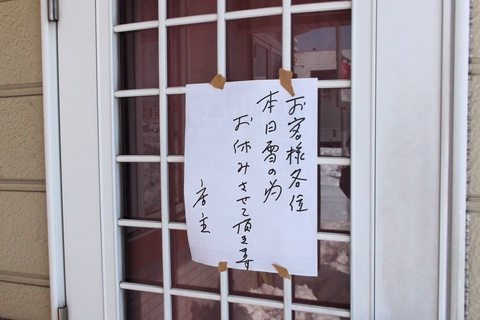 お客様各位
本日雪の為
お休みさせて頂きます
店主